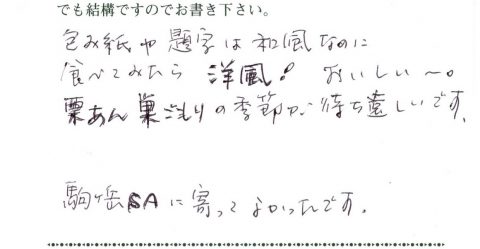 でも結構ですのでお書き下さい。
包み紙や題字は和風なのに
食べてみたら 洋風! おいしい〜。
栗あん巣ごもりの季節が待ち遠しいです。
駒ヶ岳SAに寄ってよかったです。